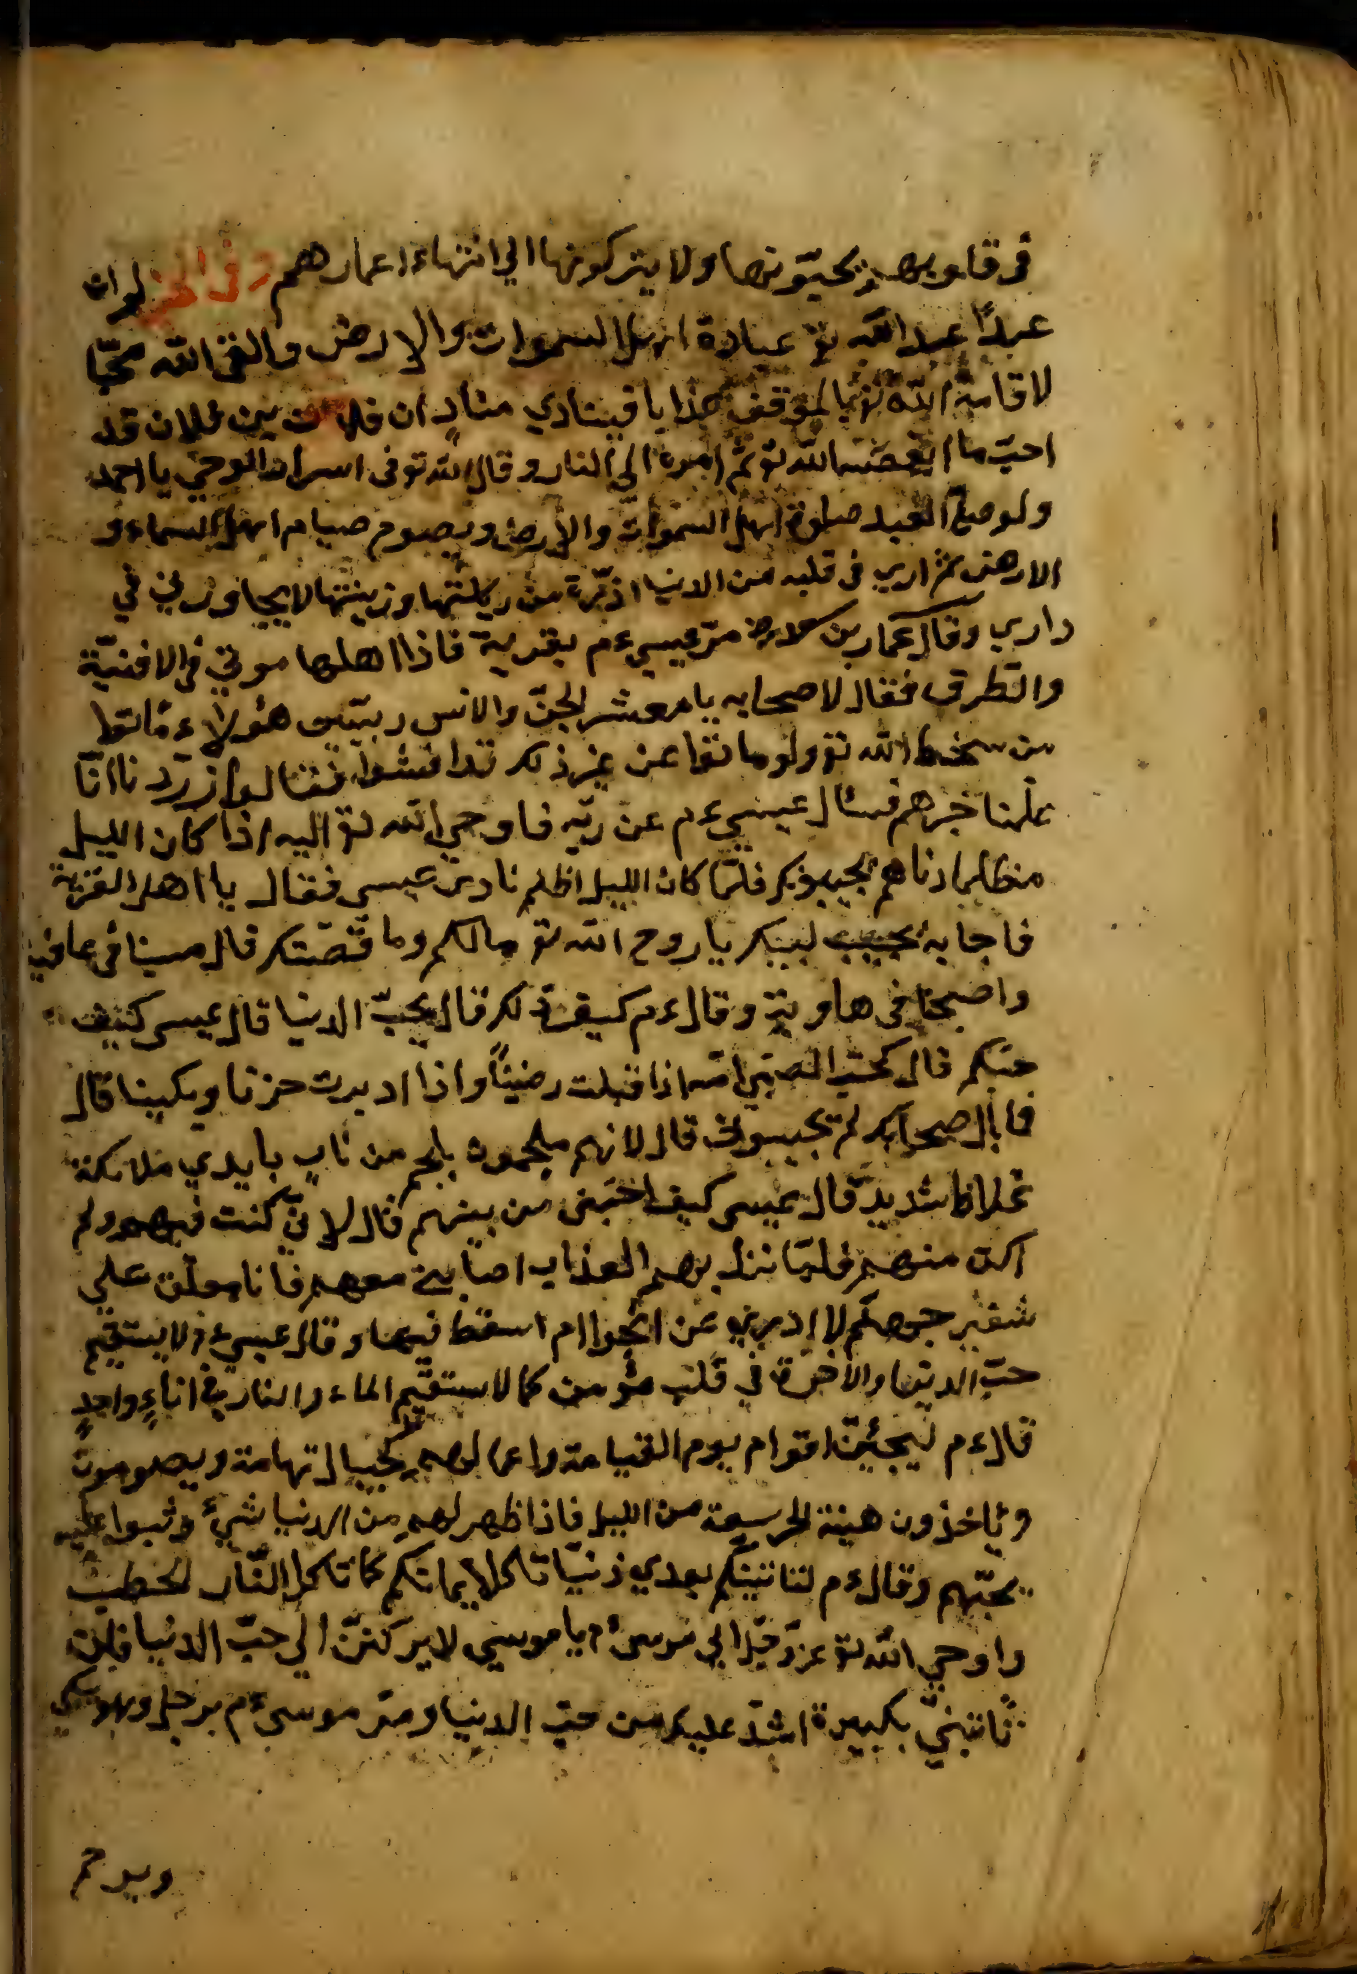 في قلوبهم يحبّونها ولا يتركونها الي انتهاء اعمارهم وفي الخبر لو ان
عبدًا عبد الله تع عبادة اهل السموات والارض والقي الله محبّا
لاقامه الله بالموقف هذا يا فينادي منادٍ ان فلان بن فلان قد
احبّ ما ابغضه الله تع ثم امره الي النار وقال الله تع في اسرار الوحي يا احمد
ولو صلي العبد صلوة اهل السموات والارض ويصوم صيام اهل السماء و
الارض ثم اري في قلبه من الدنيا ذرّة من وزينتها لا يجاورني في
داري وقال عمار بن مرّ عيسي ءم بقرية فاذا اهلها موتي في الافنيّة
والطرق فقال لاصحابه يا معشر الجنّ والانس هؤلاء ماتوا
من سخط الله تع ولو ماتوا عن غير ذلك تدافنوا فقالوا انّا
علمنا خبرهم فسئال عيسي ءم عن ربّه فاوحي الله تع اليه اذا كان الليل
نادهم يجيبوك فلمّا كان الليل اظلم نادي عيسي فقال يا اهل القرية
فاجابه مجيب لبيك يا روح الله تع مالكم وما قصّتكم قال مسينا في عافية
واصبحنا في هاوية وقال ءم كيف ذلك قال بحبّ الدنيا قال عيسي كيف
حبّكم قال كحبّ الصبيّ امّه اذا قبلت رضينًا واذا ادبرت حزنا وبكينا قال
فما بال اصحابك لم يجيبوني قال لانهم ملجمون بلجم من نار بايدي ملائكة
غلاظ شديد قال عيسي كيف اجبتني من بينهم قال لانّي كنت فيهم ولم
اكن منهم فلمّا نزل بهم العذاب اصابني معهم فانا معلّق علي
شفير جهنّم لا ادري عن انجوا ام اسقط فيها وقال عيسي ءم لا يستقيم
حبّ الدنيا والآخرة في قلب مؤمن كما لا يستقيم الماء والنار في اناءٍ واحدٍ
قال ءم ليجيئنّ اقوام يوم القيامة واعمالهم كجبال تهامة ويصومون
وياخذون هينة من الليل فاذا ظهر لهم من الدنيا شيئ وثبوا عليه
بحبّهم وقال ءم لتاتينّكم بعدي دنيّا تاكل ايمانكم كما تاكل النّار الحطب
واوحي الله تع عزّ وجلّ الي موسي ءم يا موسي لا يركننّ الي حبّ الدنيا فلن
تاتيني بكبيرة اشدّ عليك من حبّ الدنيا ومرّ موسي ءم برجل وهو يبكي
ويرحم